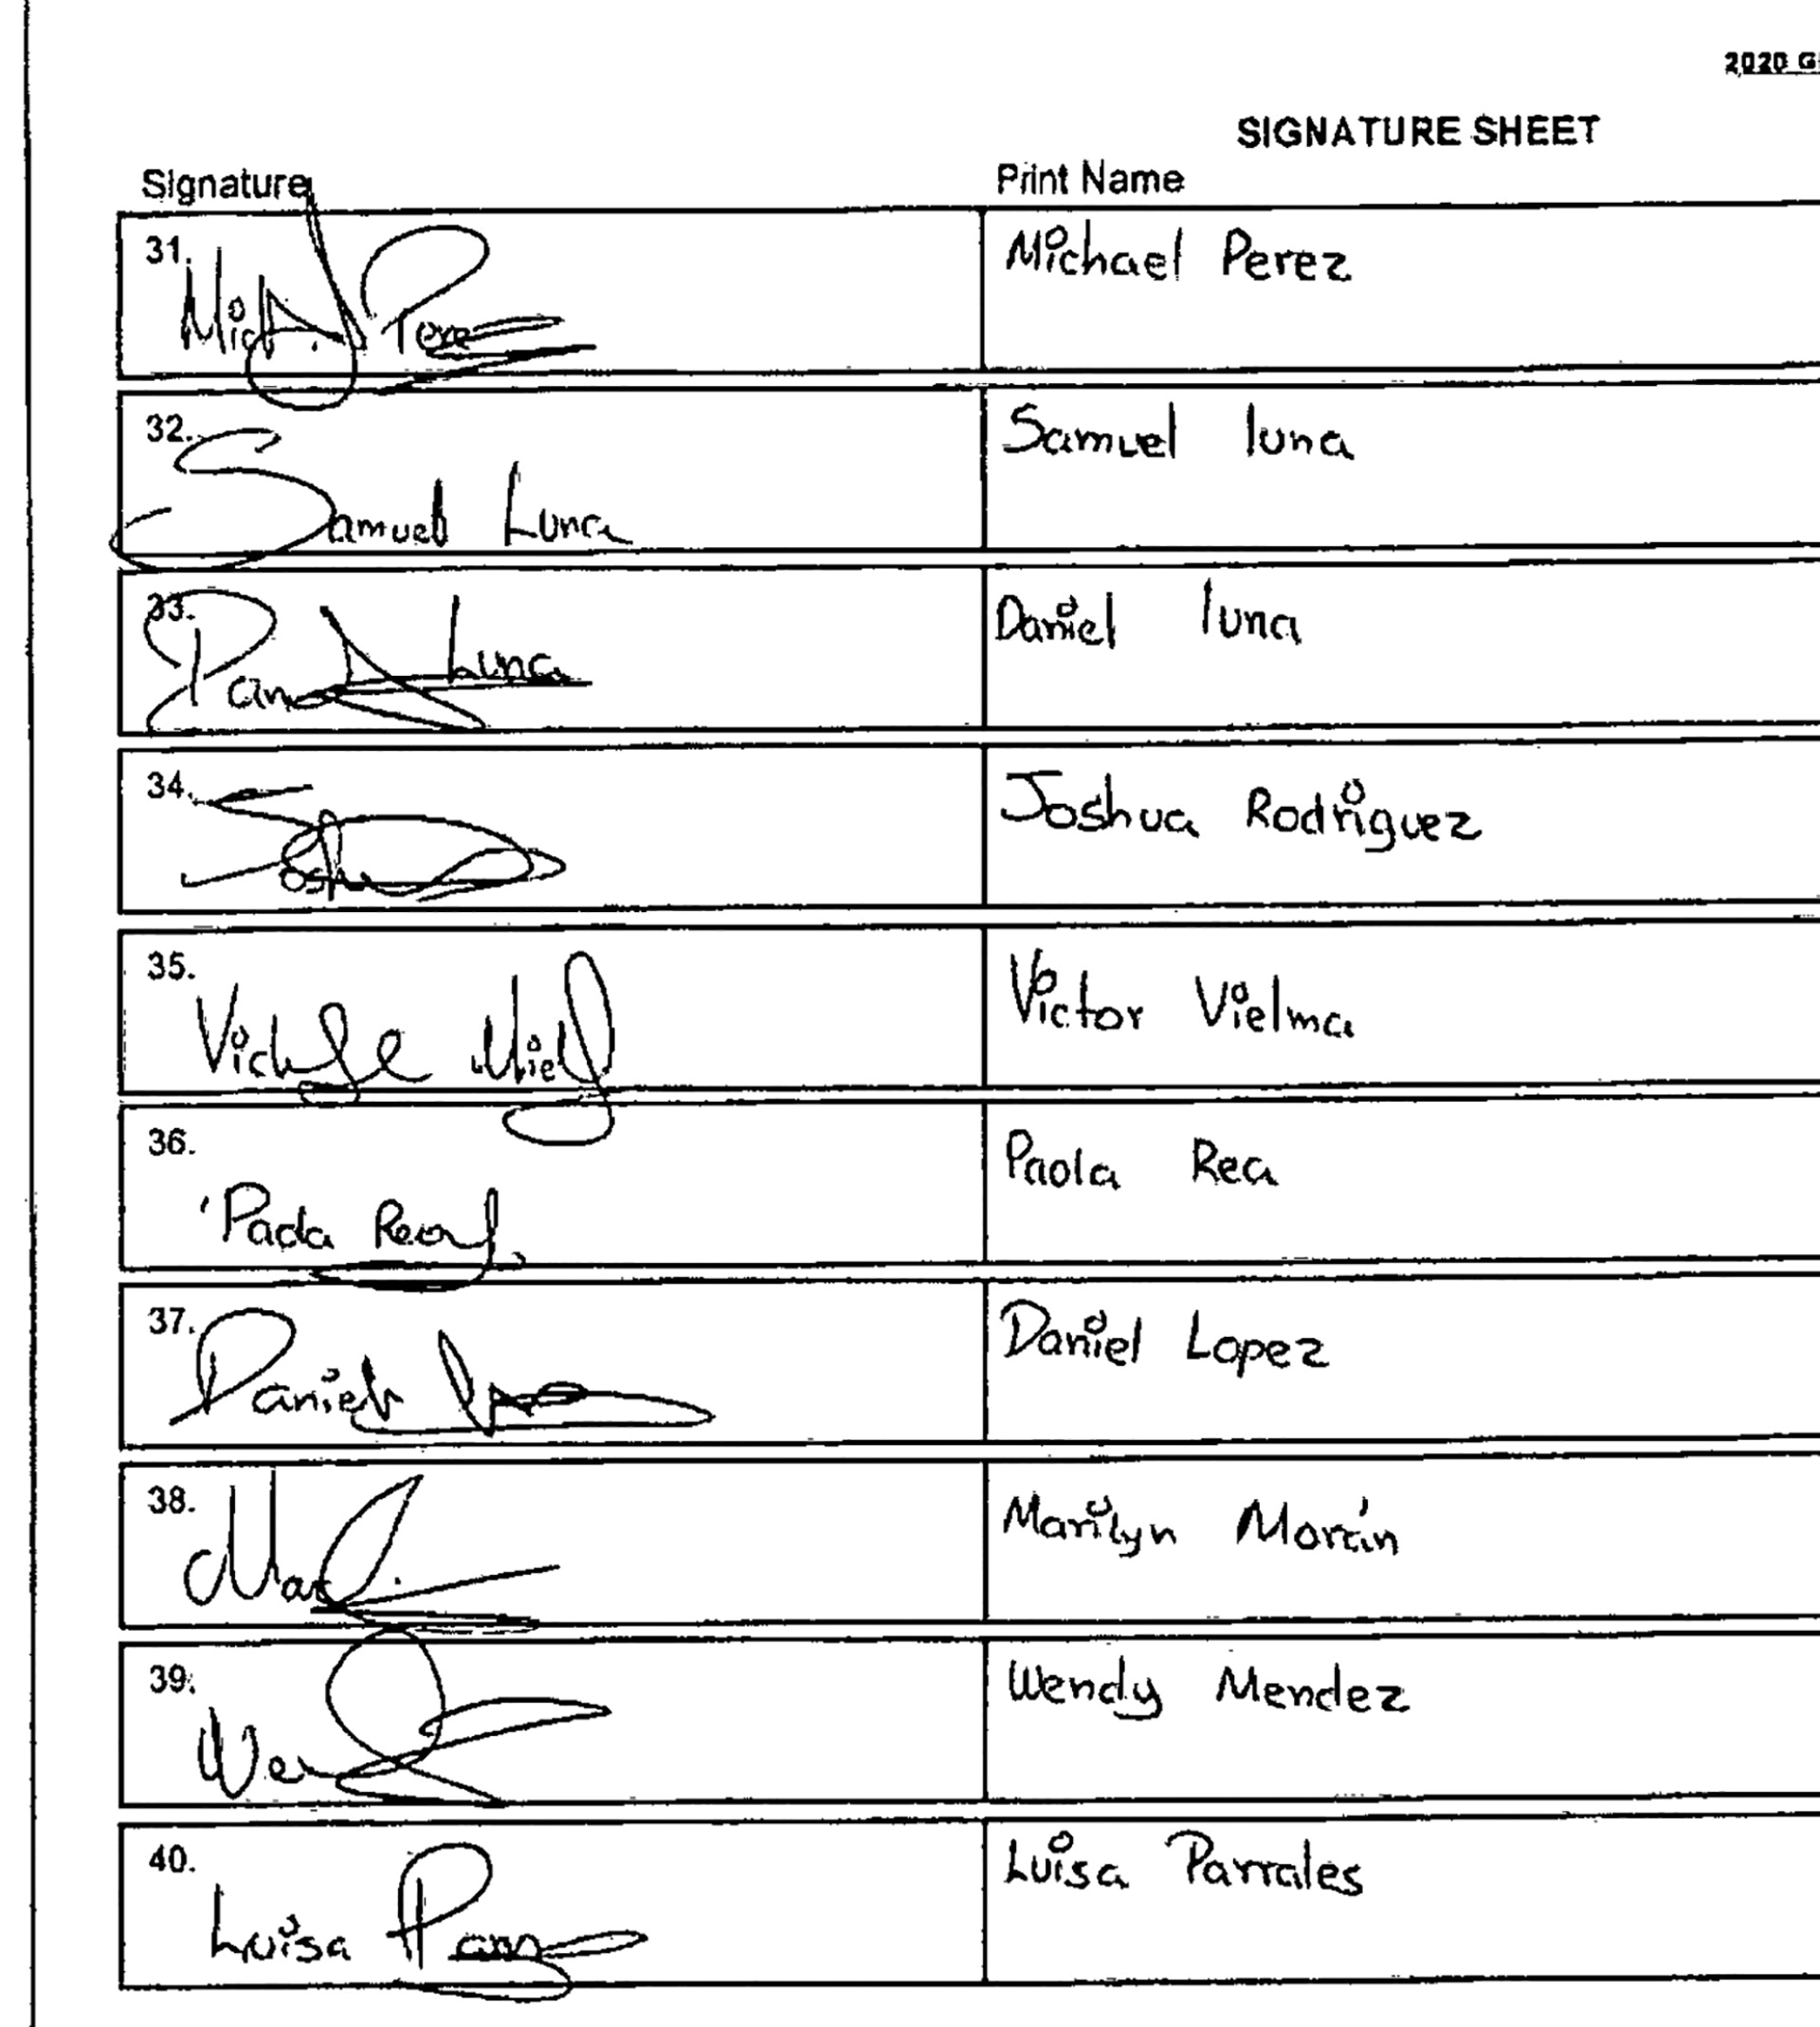 2020 G
SIGNATURE SHEET
Signature Print Name
31. Michael Perez
32. Samuel Luna Samuel luna
33. Luna Daniel luna
34. Joshua Rodriguez
35. Victor Vielma
36. Paola Rea Paola Rea
37. Daniel Daniel Lopez
38. Marilyn Morán
39. Wendy Mendez
40. Luisa Luisa Parrales